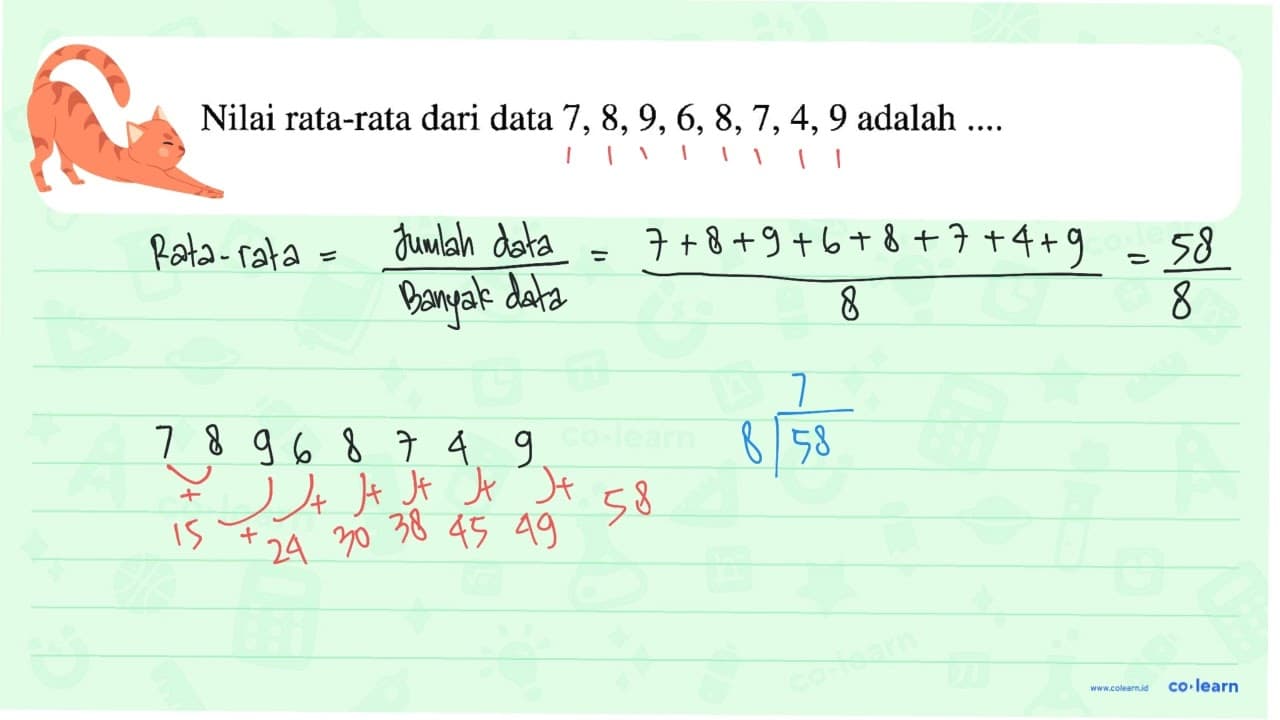 Nilai rata-rata dari data 7, 8, 9, 6, 8, 7, 4, 9 adalah ....
Rata-rata = Jumlah data / Banyak data = 7 + 8 + 9 + 6 + 8 + 7 + 4 + 9 / 8 = 58 / 8
7
8 58
7 8 9 6 8 7 4 9
+ + + + + + +
15 24 30 38 45 49 58
co·learn
www.colearn.id co·learn